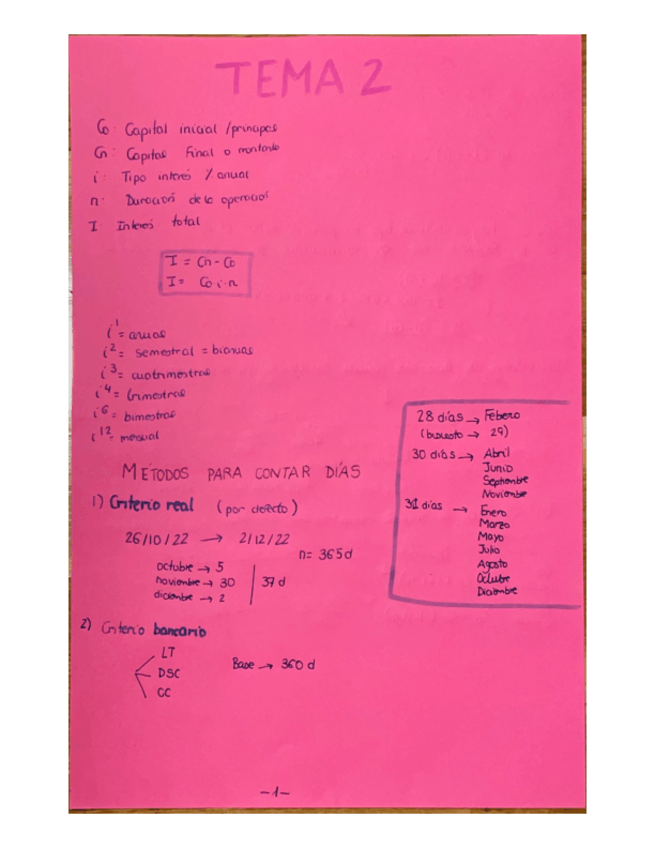 TEMA 2
Co: Capital inicial /principal
Cn: Capital Final o montante
i: Tipo interés % anual
n: Duración de la operación
I: Interés total
I = Cn - Co
I = Co · i · n
i¹ = anual
i² = semestral = bianual
i³ = cuatrimestral
i⁴ = trimestral
i⁶ = bimestral
i¹² = mensual
28 días → Febero
(bisiesto → 29)
30 días → Abril
Junio
Septiembre
Noviembre
31 días → Enero
Marzo
Mayo
Julio
Agosto
Octubre
Diciembre
METODOS PARA CONTAR DÍAS
1) Criterio real (por defecto)
26/10/22 → 2/12/22
n = 365 d
octubre → 5
noviembre → 30
diciembre → 2
37 d
2) Criterio bancario
LT
DSC
CC
Base → 360 d
-1-